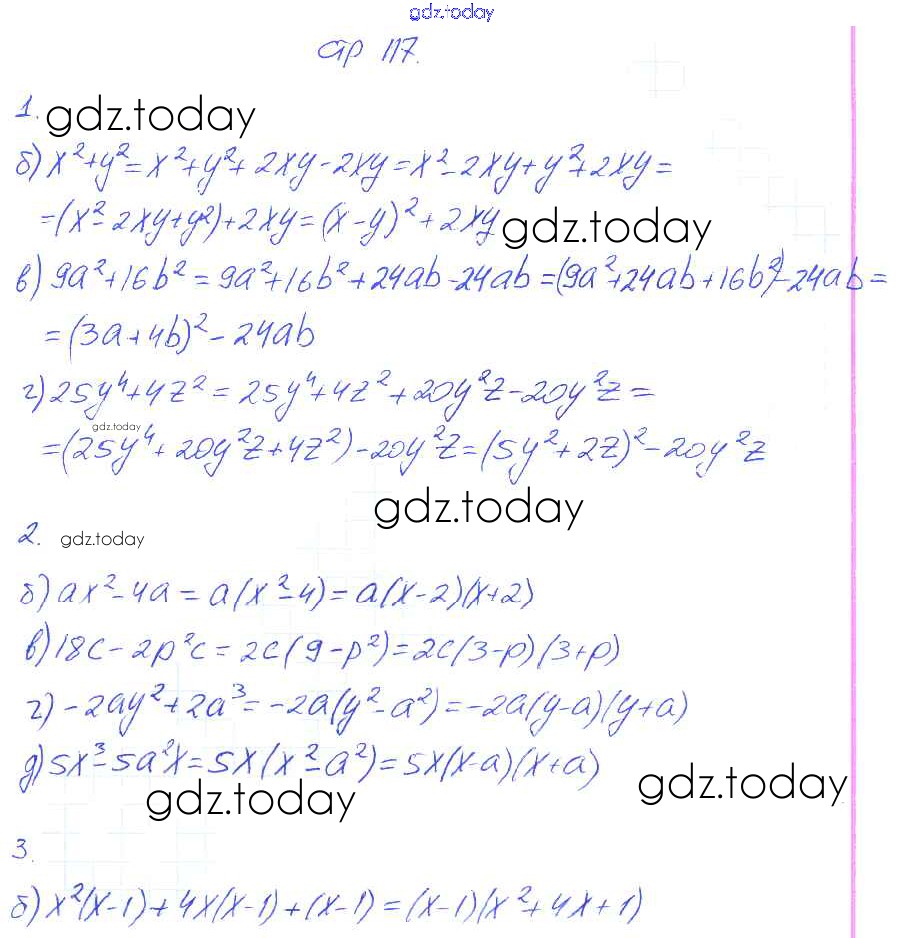 gdz.today
стр 117.
1. gdz.today
б) x²+y² = x²+y²+2xy-2xy = x²-2xy+y²+2xy =
=(x²-2xy+y²)+2xy = (x-y)²+2xy gdz.today
в) 9a²+16b² = 9a²+16b²+24ab-24ab = (9a²+24ab+16b²)-24ab =
= (3a+4b)²-24ab
г) 25y⁴+4z² = 25y⁴+4z²+20y²z-20y²z =
gdz.today
=(25y⁴+20y²z+4z²)-20y²z = (5y²+2z)²-20y²z
gdz.today
2. gdz.today
б) ax²-4a = a(x²-4) = a(x-2)(x+2)
в) 18c-2p²c = 2c(9-p²) = 2c(3-p)(3+p)
г) -2ay²+2a³ = -2a(y²-a²) = -2a(y-a)(y+a)
д) 5x³-5a²x = 5x(x²-a²) = 5x(x-a)(x+a)
gdz.today gdz.today
3.
б) x²(x-1)+4x(x-1)+(x-1) = (x-1)(x²+4x+1)